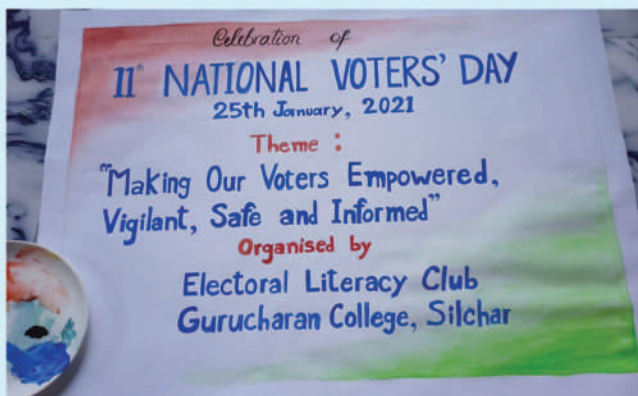 Celebration of
11th NATIONAL VOTERS' DAY
25th January, 2021
Theme :
"Making Our Voters Empowered,
Vigilant, Safe and Informed"
Organised by
Electoral Literacy Club
Gurucharan College, Silchar